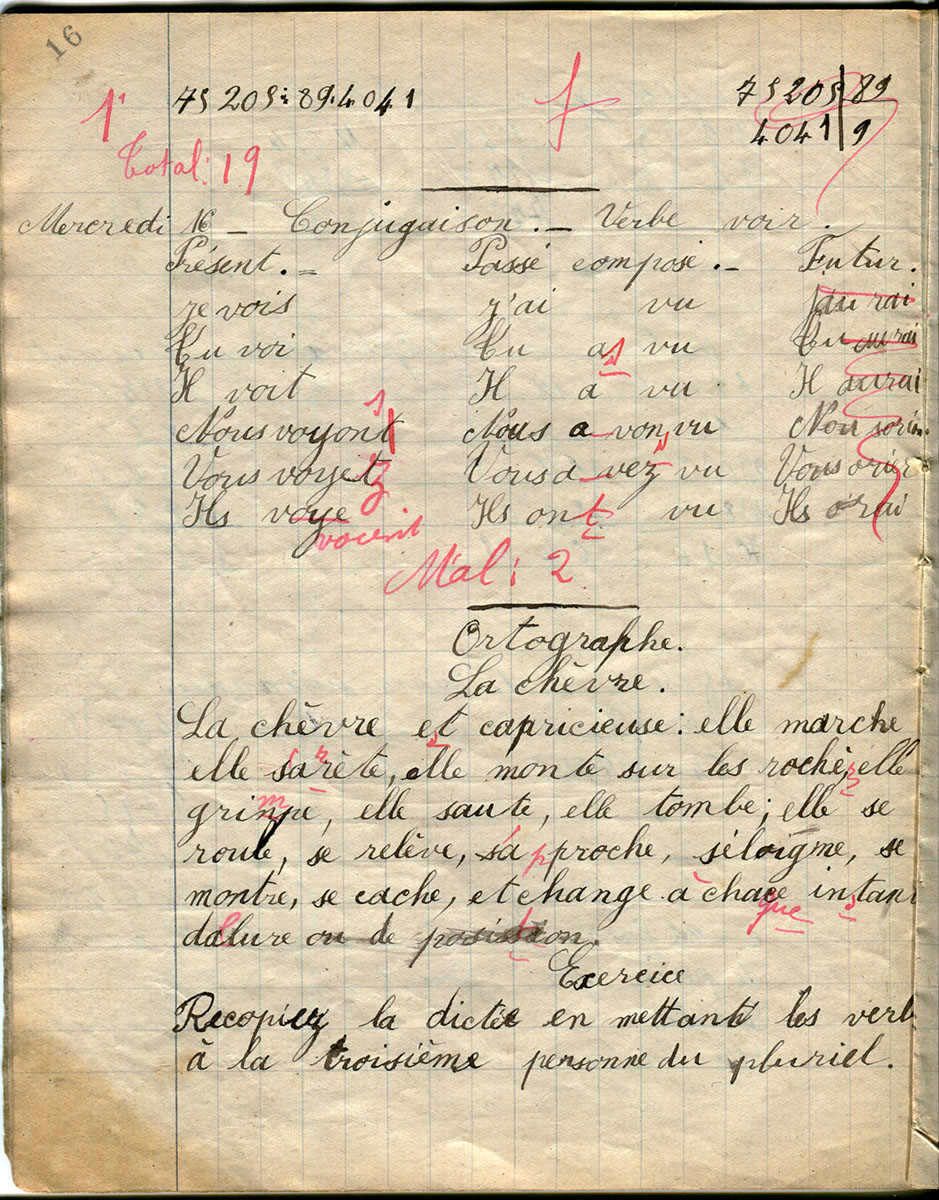 16
1 75205:89.4041 f 75205 89
4041 9
Total: 19
Mercredi 16 — Conjugaison. — Verbe voir.
Présent. — Passé composé. — Futur.
je vois j'ai vu j'au rai
Tu voi Tu as vu Tu aurai
Il voit Il a vu Il aurai
s
Nous voyont Nous a von vu Nou
Vous voyet z Vous a vez vu Vous
Ils voye Ils ont vu Ils
voient
Mal: 2
Ortographe.
La chèvre.
La chèvre est capricieuse: elle marche
elle sarète, elle monte sur les rochers elle
m
grinpe, elle saute, elle tombe; elle se
roule, se relève, s'approche, séloigme, se
montre, se cache, et change à chace instan
que
dalure ou de position.
Exercice
Recopiez la dictée en mettant les verb
à la troisième personne du pluriel.